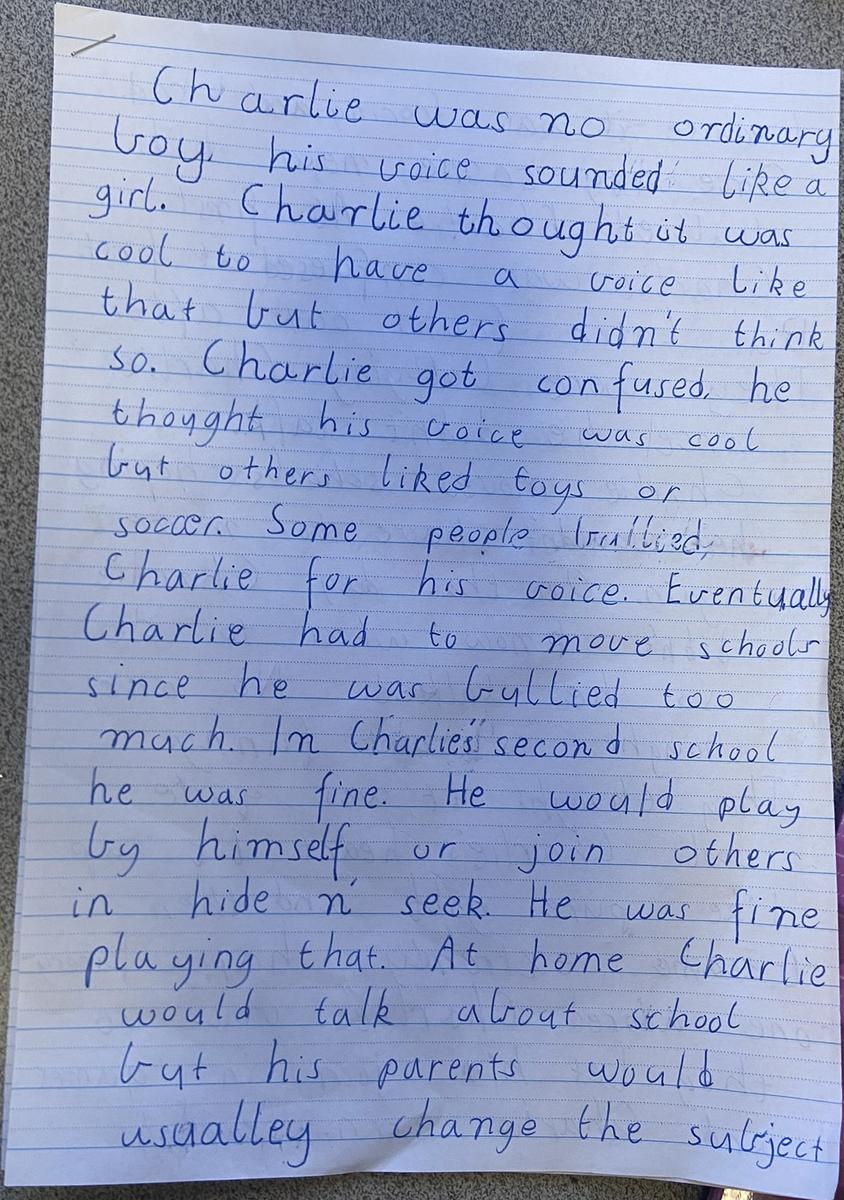 Charlie was no ordinary
boy, his voice sounded like a
girl. Charlie thought it was
cool to have a voice like
that but others didn't think
so. Charlie got confused, he
thought his voice was cool
but others liked toys or
soccer. Some people bullied
Charlie for his voice. Eventually
Charlie had to move schools
since he was bullied too
much. In Charlie's second school
he was fine. He would play
by himself or join others
in hide n' seek. He was fine
playing that. At home Charlie
would talk about school
but his parents would
usualley change the subject